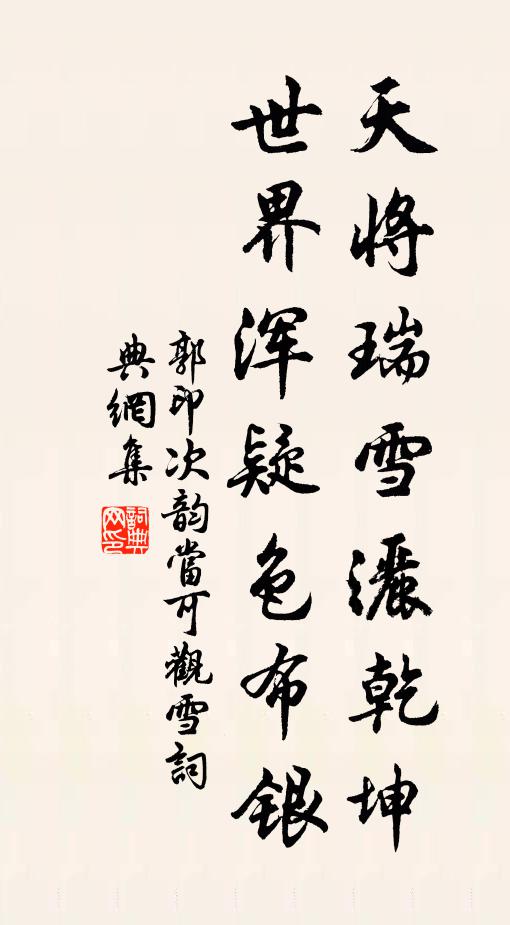 天將瑞雪灑乾坤
世界浑疑色布銀
郭印次韵當可觀雪詞
典網集
詞典網印